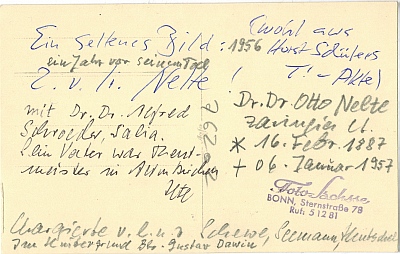 Ein seltenes Bild: 1956
ein Jahr vor seinem Tod
2. v. li. Nelte !
(wohl aus
Horst Schüters
T! - Akte)
mit Dr. Dr. Alfred
Schroeder, Salia.
Sein Vater war Rent-
meister in Altenbüren
76262
Dr. Dr. Otto Nelte
Zaringiae
* 16. Febr. 1887
+ 06. Januar 1957
Foto Sachse
BONN, Sternstraße 78
Ruf: 51281
Chargierte v. l. n. r. Schewe, Seemann,
Im Hintergrund Bbr. Gustav Dawin